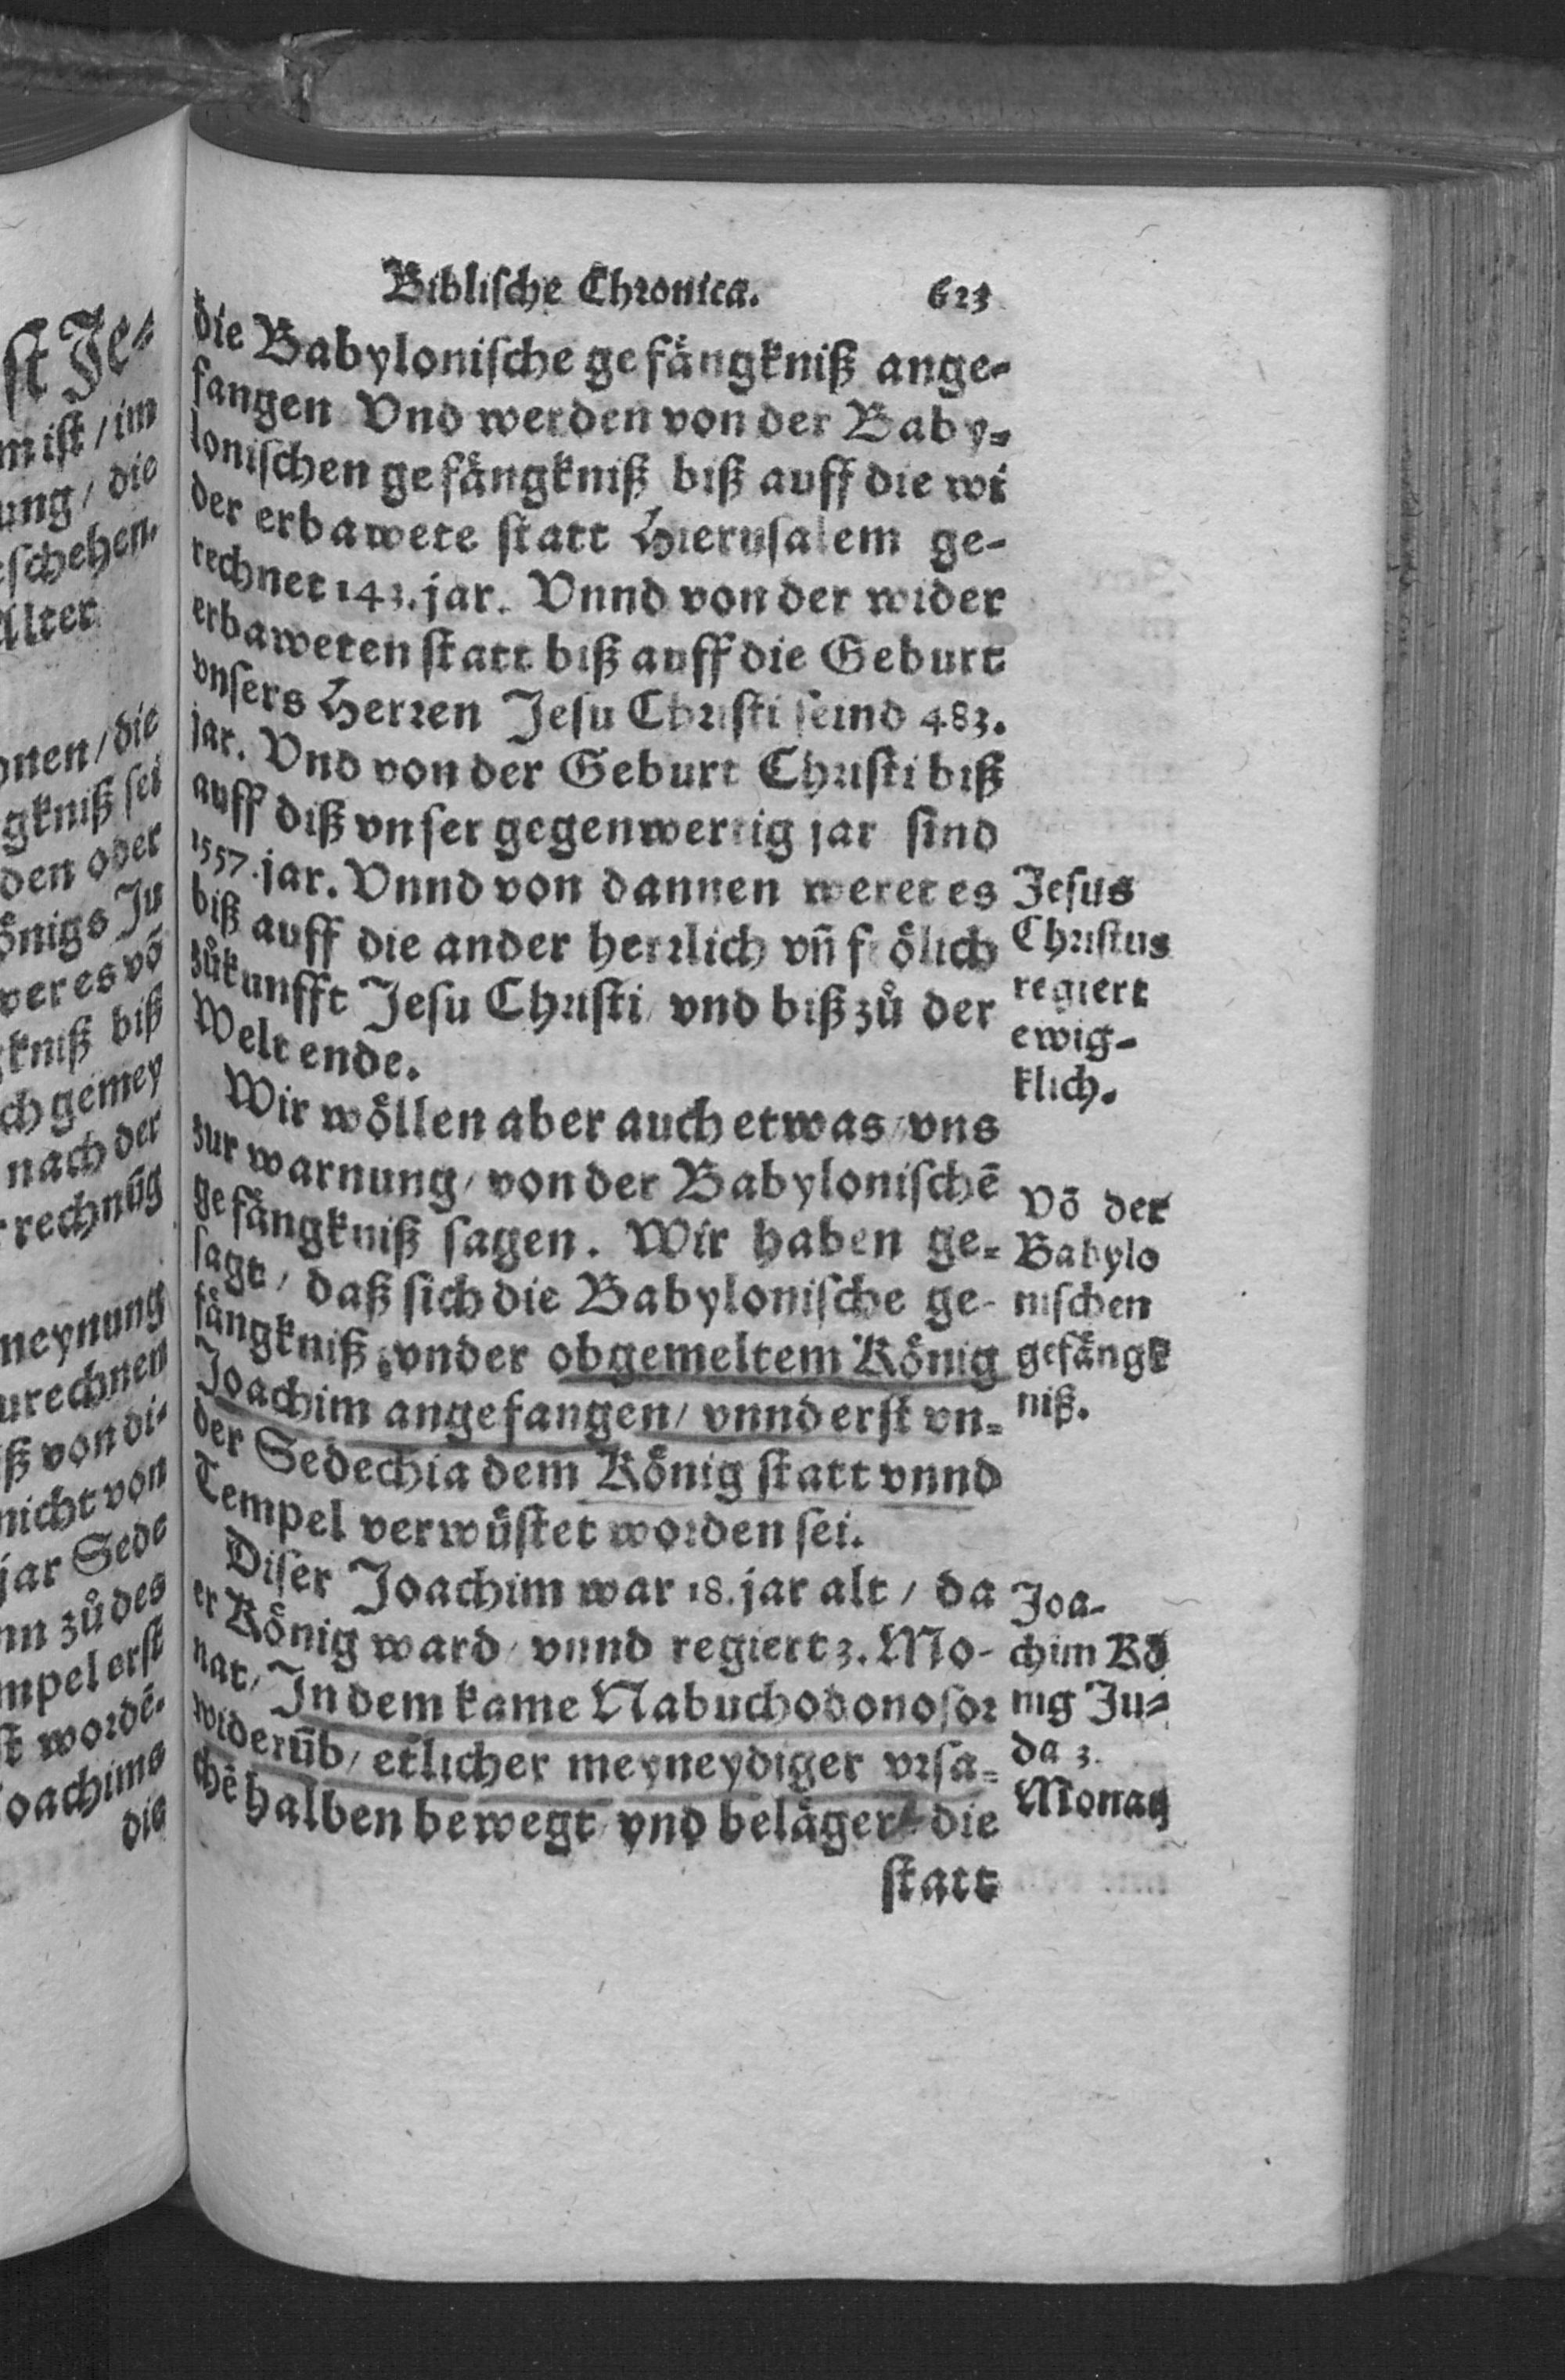 Biblische Chronica. 623
die Babylonische gefängkniß ange-
fangen Vnd werden von der Baby-
lonischen gefängkniß biß auff die wi
der erbawete statt Hierusalem ge-
rechnet 143. jar. Vnnd von der wider
erbaweten statt biß auff die Geburt
vnsers Herren Jesu Christi seind 483.
jar. Vnd von der Geburt Christi biß
auff diß vnser gegenwertig jar sind
1557. jar. Vnnd von dannen weret es
biß auff die ander herrlich vñ frölich
zůkunfft Jesu Christi / vnd biß zů der
Welt ende.
Jesus
Christus
regiert
ewig-
klich.
Wir wöllen aber auch etwas / vns
zur warnung / von der Babylonischē
gefängkniß sagen. Wir haben ge-
sagt / daß sich die Babylonische ge-
fängkniß / vnder obgemeltem König
Joachim angefangen / vnnd erst vn-
der Sedechia dem König statt vnnd
Tempel verwüstet worden sei.
Võ der
Babylo
nischen
gefängk
niß.
Diser Joachim war 18. jar alt / da
er König ward / vnnd regiert 3. Mo-
nat / In dem kame Nabuchodonosor
widerūb / etlicher meyneydiger vrsa-
chē halben bewegt / vnd beläget die
statt
Joa-
chim Kö
nig Ju-
da 3.
Monatz
st Je-
m ist / im
ung / die
schehen.
Alter
onen / die
gkniß sei
den oder
önigs Ju
wer es võ
kniß biß
ch gemey
nach der
rechnūg
meynung
urechnen
ß von di-
nicht von
jar Sede
nn zů des
mpel erst
st wordē.
Joachims
die